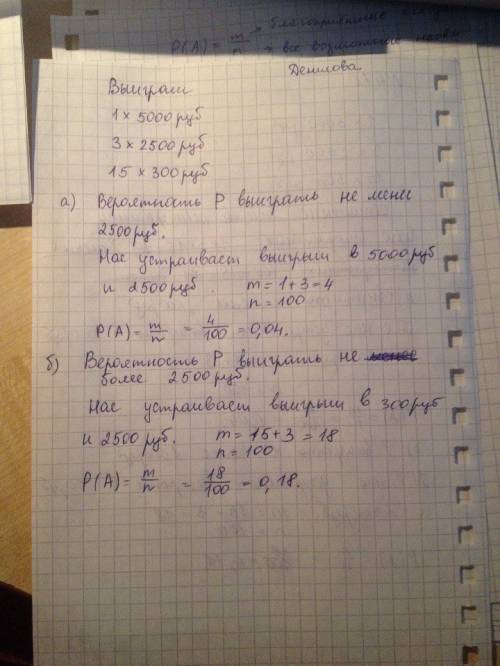 P(A) = m/n → благоприятные
→ все возможные
Денилова.
Выиграш
1 × 5000 руб
3 × 2500 руб
15 × 300 руб
а) Вероятность P выиграть не менее
2500 руб.
Нас устраивает выигрыш в 5000 руб
и 2500 руб. m = 1+3 = 4
n = 100
P(A) = m/n = 4/100 = 0,04.
б) Вероятность P выиграть не менее
более 2500 руб.
Нас устраивает выигрыш в 300 руб
и 2500 руб. m = 15+3 = 18
n = 100
P(A) = m/n = 18/100 = 0,18.